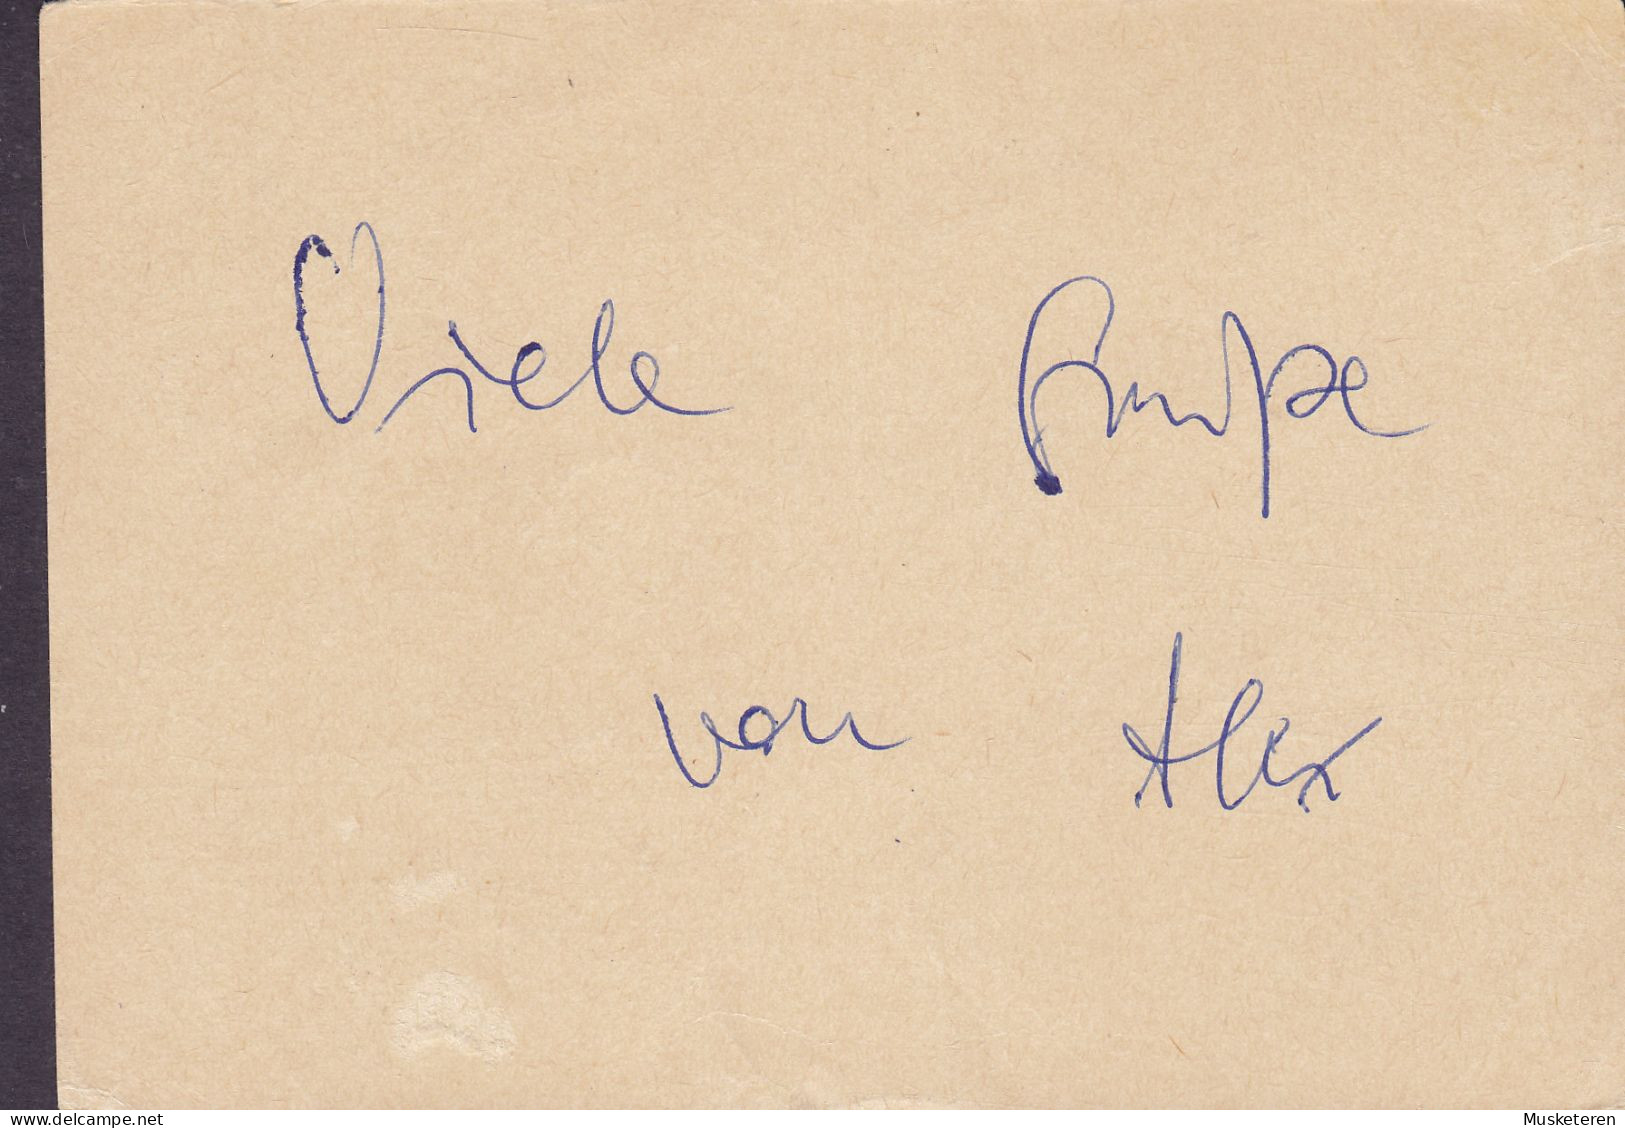 Viele Grüße
von Alex
www.delcampe.net Musketeren